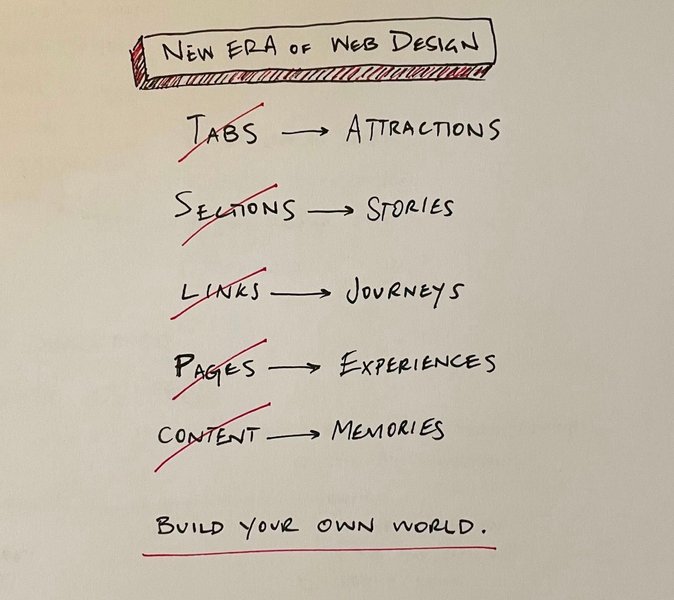 NEW ERA OF WEB DESIGN
TABS → ATTRACTIONS
SECTIONS → STORIES
LINKS → JOURNEYS
PAGES → EXPERIENCES
CONTENT → MEMORIES
BUILD YOUR OWN WORLD.